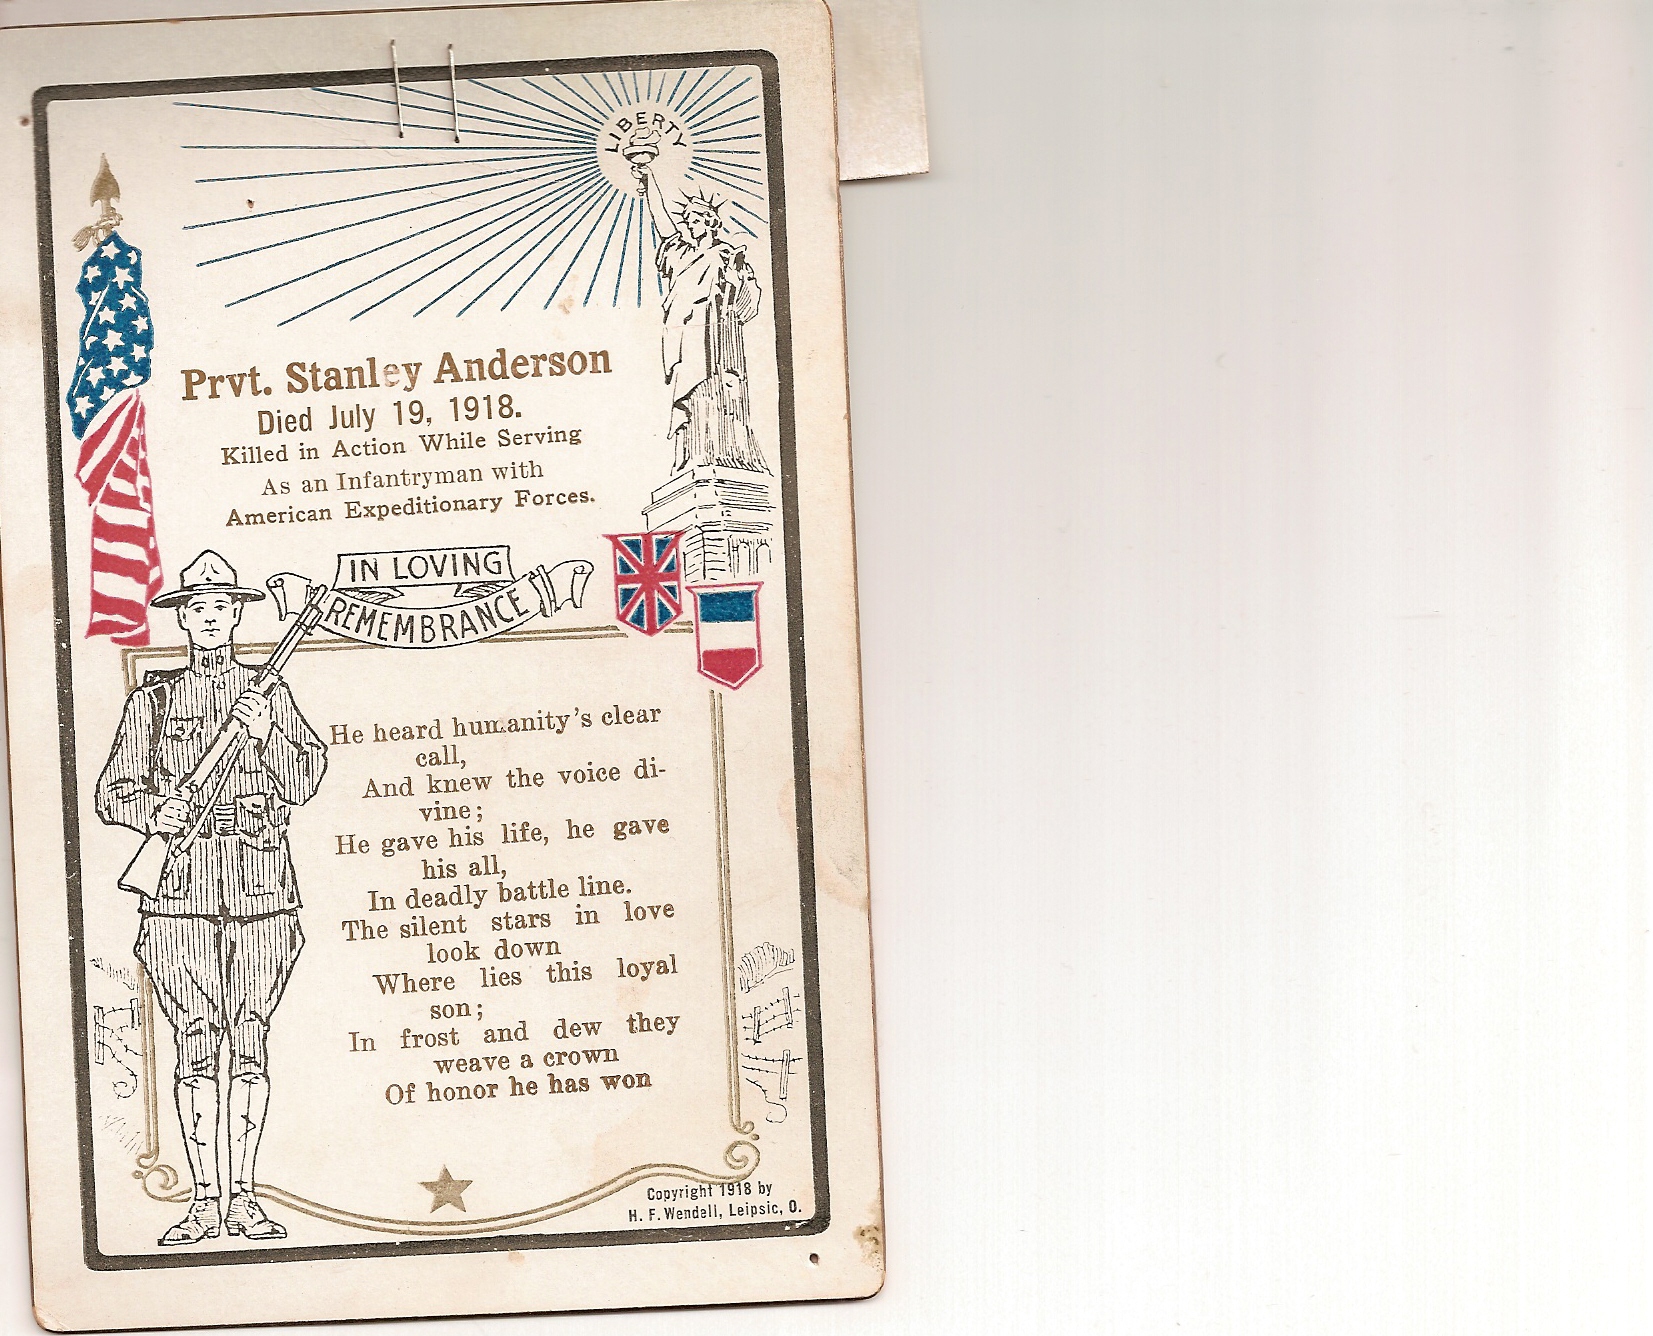 LIBERTY
Prvt. Stanley Anderson
Died July 19, 1918.
Killed in Action While Serving
As an Infantryman with
American Expeditionary Forces.
IN LOVING
REMEMBRANCE
He heard humanity's clear
call,
And knew the voice di-
vine;
He gave his life, he gave
his all,
In deadly battle line.
The silent stars in love
look down
Where lies this loyal
son;
In frost and dew they
weave a crown
Of honor he has won
Copyright 1918 by
H. F. Wendell, Leipsic, O.